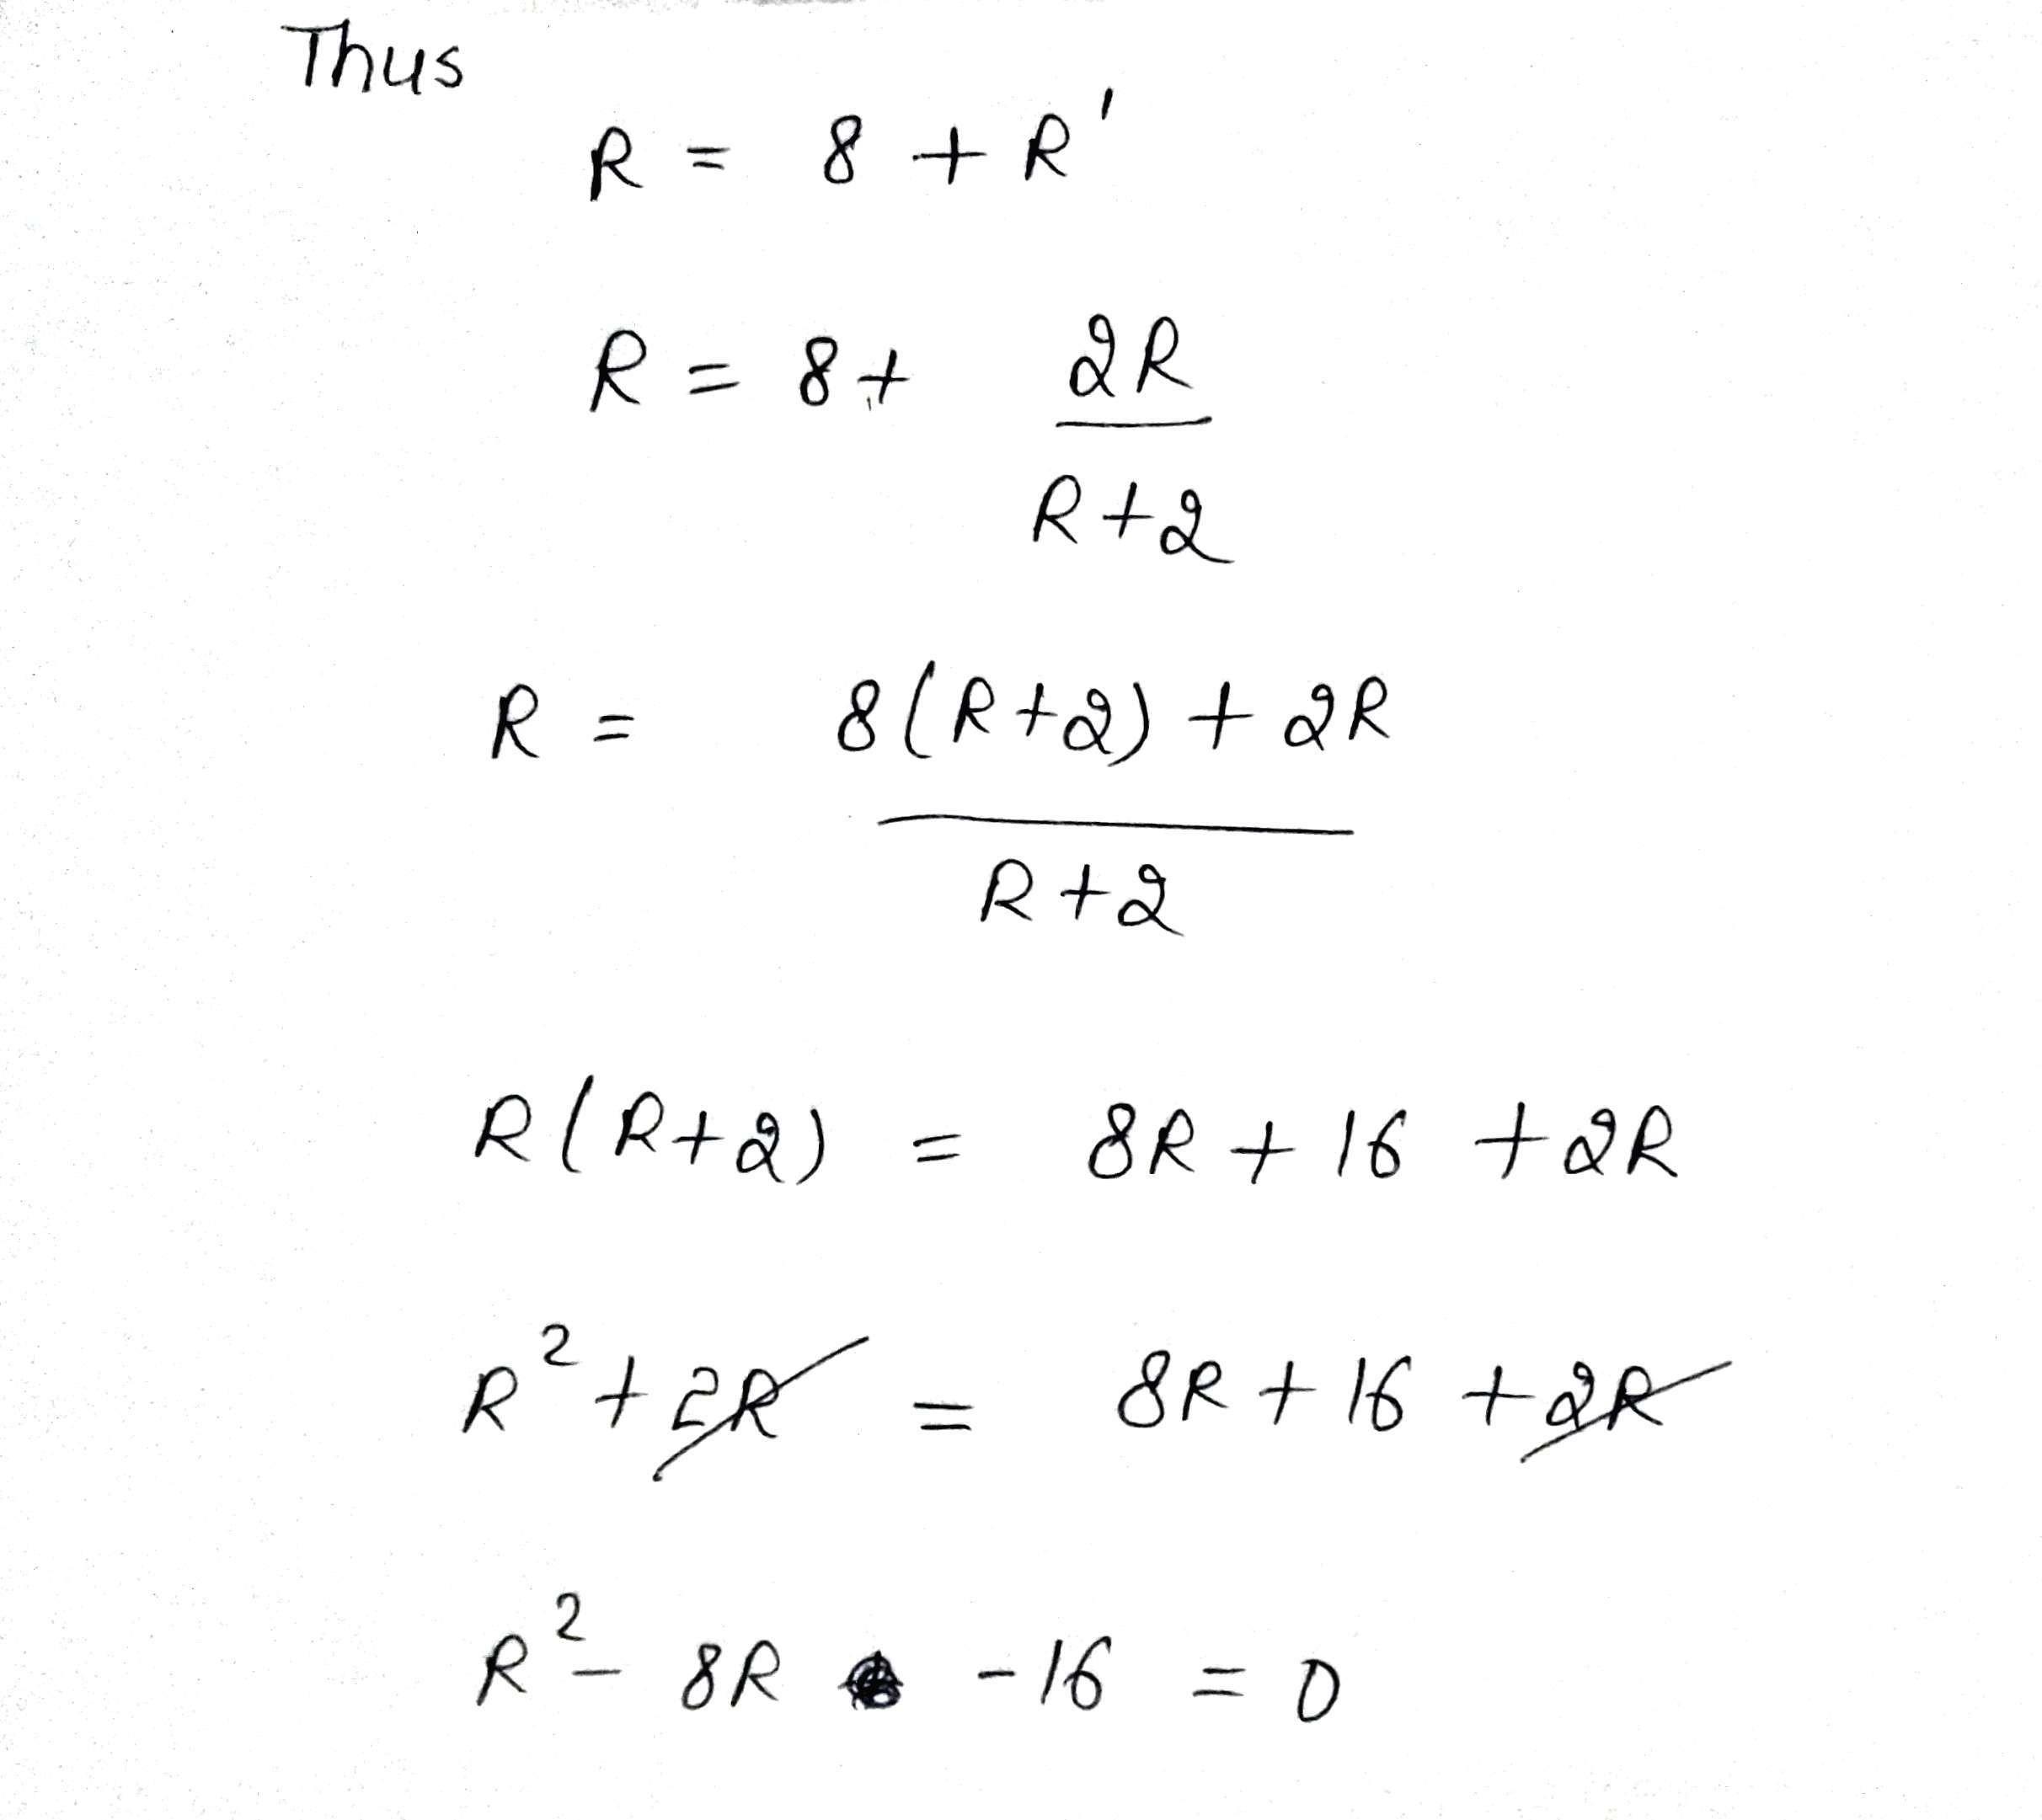 Thus
R = 8 + R'
R = 8 + 2R
R+2
R = 8(R+2) + 2R
R+2
R(R+2) = 8R + 16 + 2R
R² + 2R = 8R + 16 + 2R
R² - 8R - 16 = 0